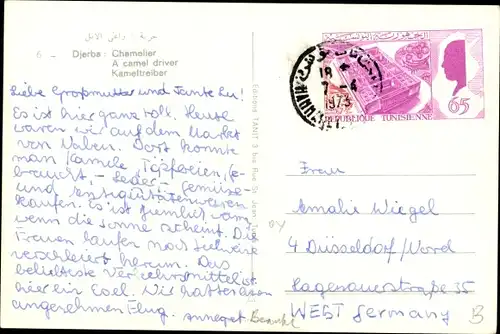 جربة : راعي الابل
6 - Djerba : Chamelier
A camel driver
Kameltreiber
Liebe Großmutter und Tante Lu!
Es ist hier ganz toll. Heute
waren wir auf dem Markt
von Nabeul. Dort konnte
man Kamele, Töpfereien, Ge-
- Leder-, Gemüse-
und Antiquitätenwaren
kaufen. Es ist ziemlich warm,
wenn die Sonne scheint. Die
Frauen laufen noch teilweise
verschleiert herum. Das
beliebteste Verkehrsmittel ist
hier ein Esel. Wir hatten einen
angenehmen Flug. Annegret
Editions TANIT
18
7-4
1973
65
REPUBLIQUE TUNISIENNE
Frau
Amalie Wiegel
4 Düsseldorf/Nord
Hagenauerstraße 35
WEST Germany
B